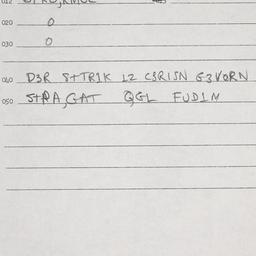 020 0
030 0
040 D3R STTR1K 12 C3RISN G3VORN
050 STRA,GAT QGL FUD1N